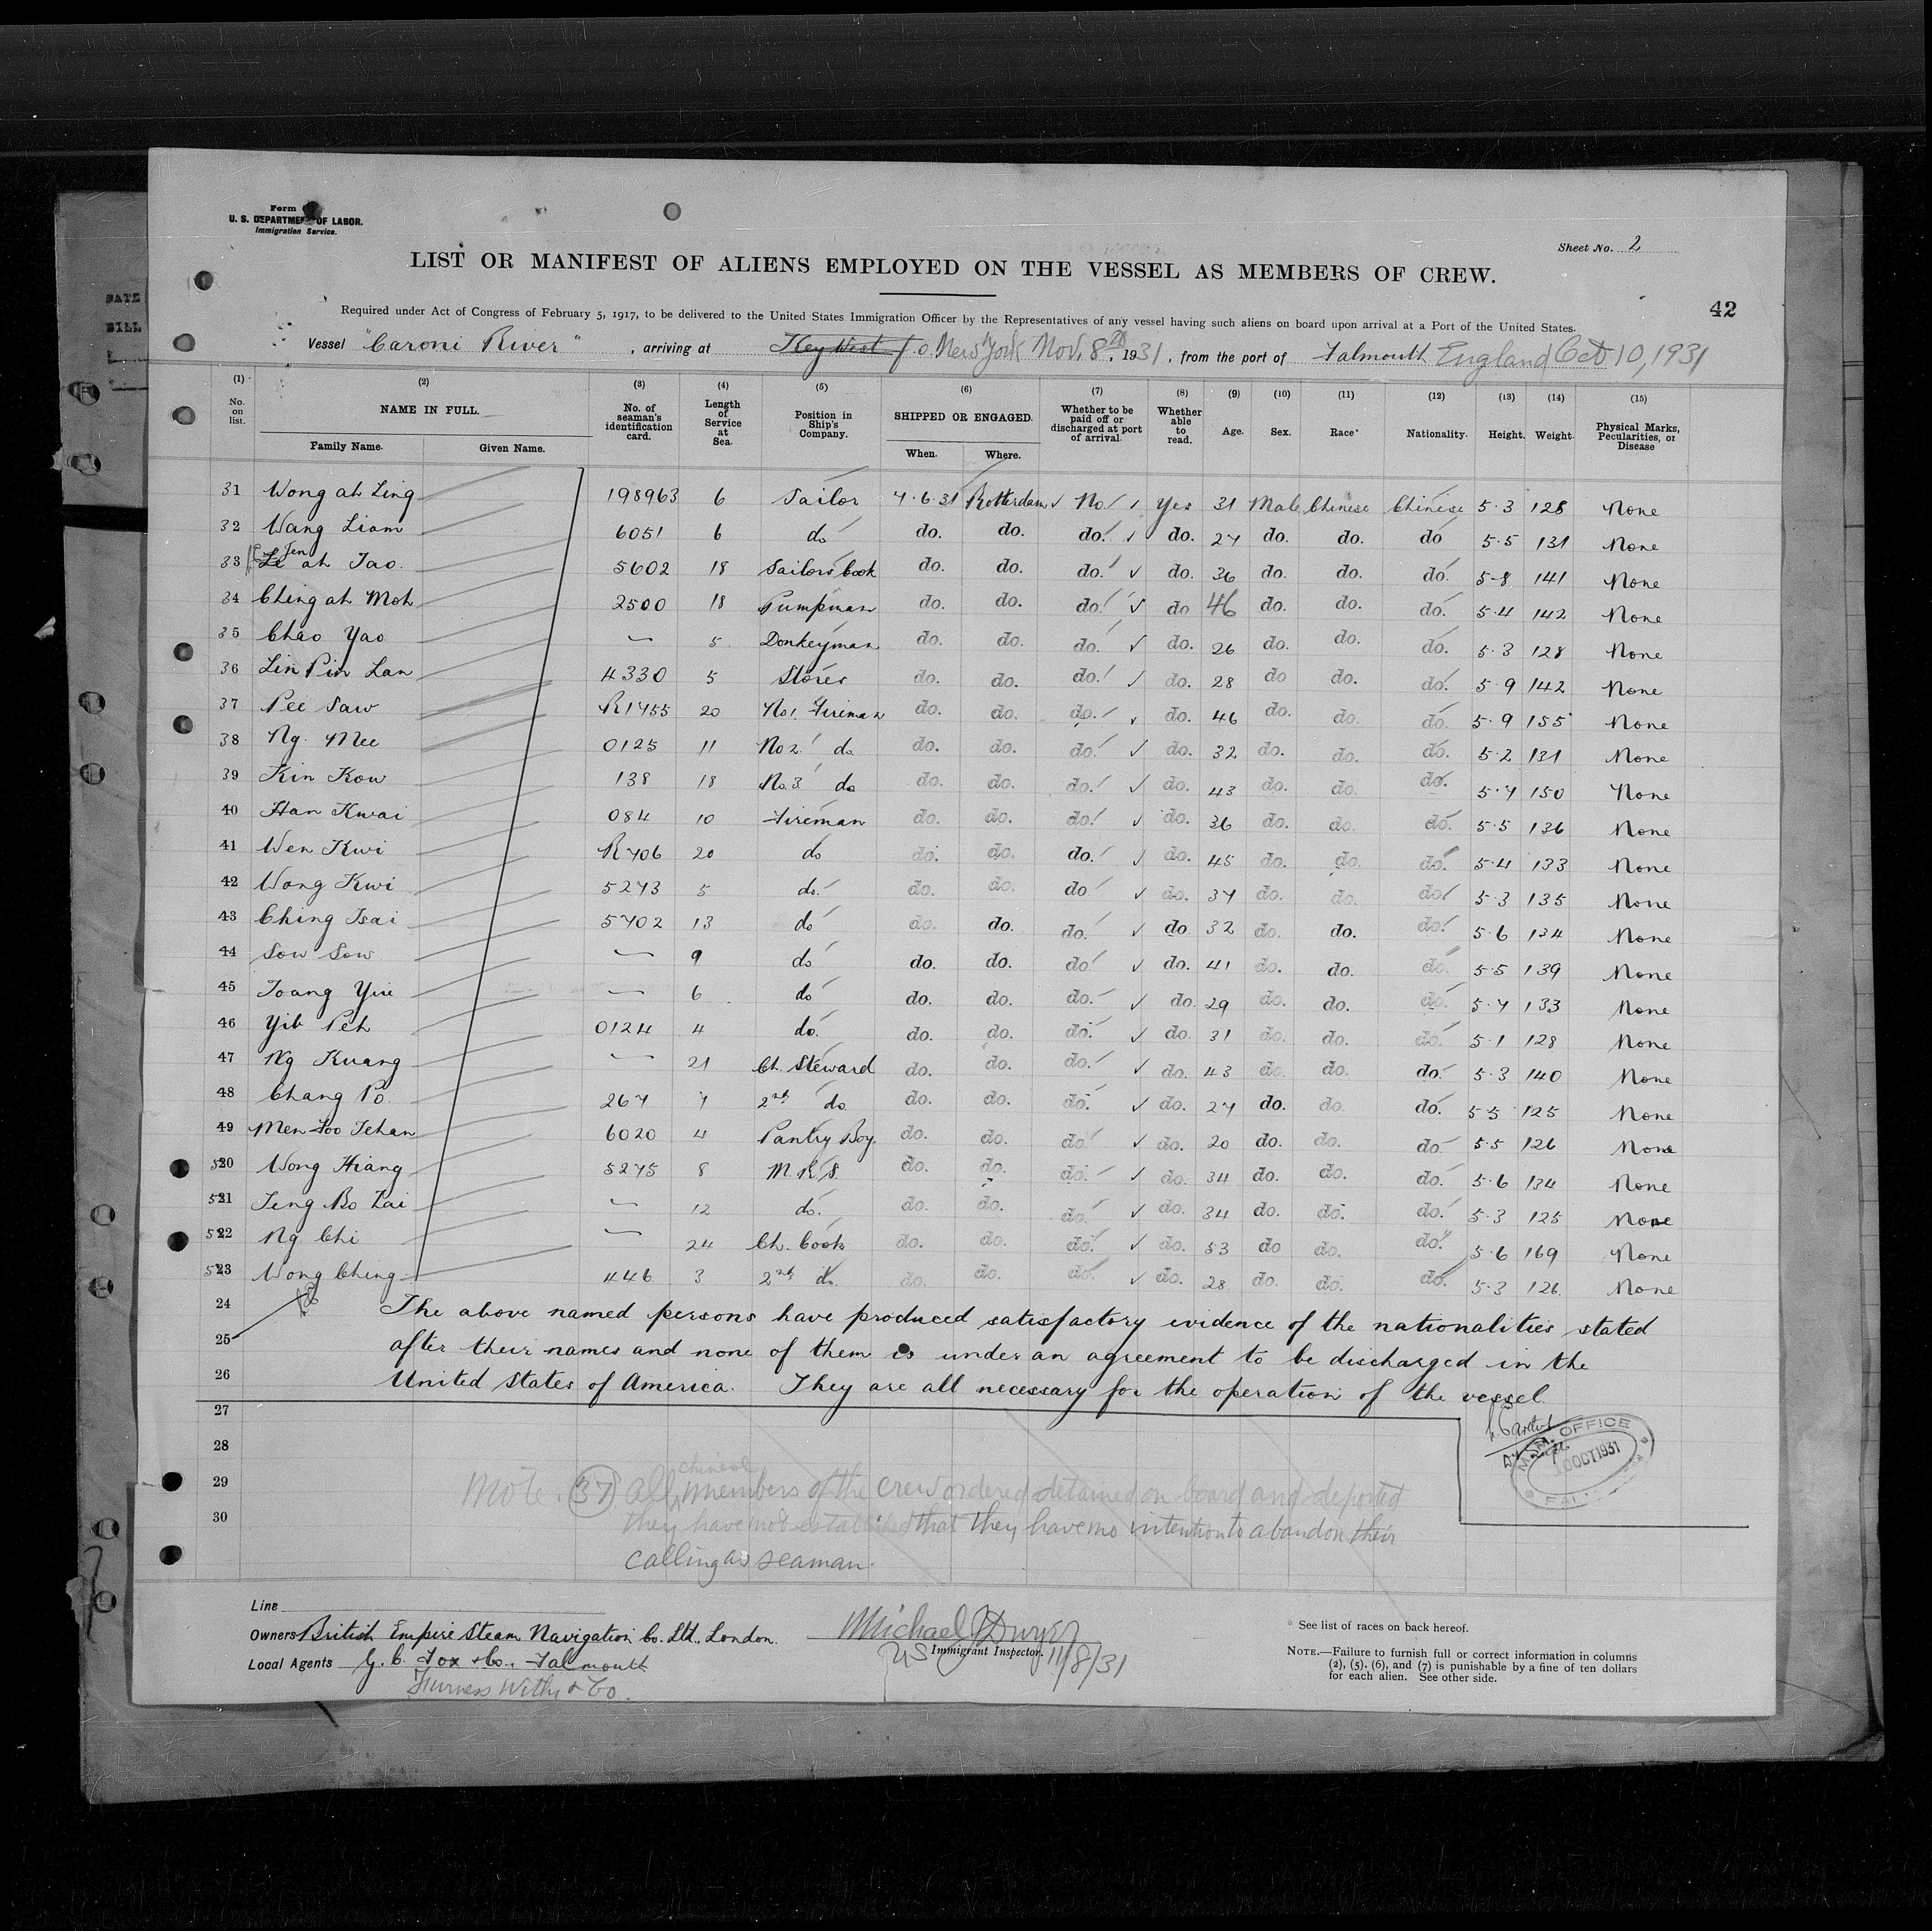 Form
U. S. DEPARTMENT OF LABOR.
Immigration Service.
Sheet No. 2
LIST OR MANIFEST OF ALIENS EMPLOYED ON THE VESSEL AS MEMBERS OF CREW.
42
Required under Act of Congress of February 5, 1917, to be delivered to the United States Immigration Officer by the Representatives of any vessel having such aliens on board upon arrival at a Port of the United States.
Vessel "Caroni River", arriving at Key West f.o. New York Nov. 8th, 1931, from the port of Falmouth England Oct 10, 1931
(1) (2) (3) (4) (5) (6) (7) (8) (9) (10) (11) (12) (13) (14) (15)
No. on list. NAME IN FULL. Family Name. Given Name. No. of seaman's identification card. Length of Service at Sea. Position in Ship's Company. SHIPPED OR ENGAGED. When. Where. Whether to be paid off or discharged at port of arrival. Whether able to read. Age. Sex. Race* Nationality. Height. Weight. Physical Marks, Pecularities, or Disease
31 Wong ah Ling 198963 6 Sailor 7.6.31 Rotterdam No Yes 31 Male Chinese Chinese 5.3 128 None
32 Wang Liam 6051 6 do do. do. do. do. 27 do. do. do 5.5 131 None
33 ah Tao 5602 18 Sailors Cook do. do. do. do. 36 do. do. do. 5-8 141 None
34 Ching ah Moh 2500 18 Pumpman do. do. do. do 46 do. do. do. 5.4 142 None
35 Chao Yao — 5 Donkeyman do. do. do. do. 26 do. do. do. 5.3 128 None
36 Lin Pin Lan 4330 5 Stores do. do. do. do. 28 do do. do. 5.9 142 None
37 Pee Saw R1755 20 No 1. Fireman do. do. do. do. 46 do. do. do. 5.9 155 None
38 Ng. Mee 0125 11 No 2 do do. do. do. do. 32 do. do. do. 5.2 131 None
39 Kin Kow 138 18 No. 3 do do. do. do. do. 43 do. do. do. 5.7 150 None
40 Han Kwai 084 10 Fireman do. do. do. do. 36 do. do. do. 5.5 136 None
41 Wen Kwi R706 20 do do. do. do. do. 45 do. do. do. 5.4 133 None
42 Wong Kwi 5273 5 do. do. do. do do. 37 do. do. do 5.3 135 None
43 Ching Tsai 5702 13 do do. do. do. do 32 do. do. do. 5.6 134 None
44 Sow Sow — 9 do do. do. do. do. 41 do. do. do. 5.5 139 None
45 Toang Yiu — 6 do do. do. do. do. 29 do. do. do. 5.7 133 None
46 Yib Peh 0124 4 do. do. do. do. do. 31 do. do. do. 5.1 128 None
47 Ng Kuang — 21 Ch. Steward do. do. do. do. 43 do. do. do. 5.3 140 None
48 Chang Po. 267 7 2nd do do. do. do. do. 27 do. do. do. 5.5 125 None
49 Men Foo Tchan 6020 4 Pantry Boy. do. do. do. do. 20 do. do. do 5.5 126 None
50 Wong Hiang 5275 8 M.R.S. do. do. do. do. 34 do. do. do. 5.6 134 None
51 Teng Bo Lai — 12 do. do. do. do. do. 34 do. do. do. 5.3 125 None
52 Ng Chi — 24 Ch. Cook do. do. do. do. 53 do do. do. 5.6 169 None
53 Wong Ching 446 3 2nd do. do. do. do. do. 28 do. do. do. 5.3 126 None
24 The above named persons have produced satisfactory evidence of the nationalities stated
25 after their names and none of them is under an agreement to be discharged in the
26 United States of America. They are all necessary for the operation of the vessel.
27
28
29 Note. (37) All chinese members of the crew ordered detained on board and deported
30 they have not established that they have no intention to abandon their
calling as seaman.
OFFICE
OCT 1931
Line
Owners British Empire Steam Navigation Co. Ltd., London.
Local Agents G. C. Fox & Co. Falmouth
Furness Withy & Co.
Michael J Dwyer
US Immigrant Inspector. 11/8/31
* See list of races on back hereof.
NOTE.—Failure to furnish full or correct information in columns
(2), (5), (6), and (7) is punishable by a fine of ten dollars
for each alien. See other side.